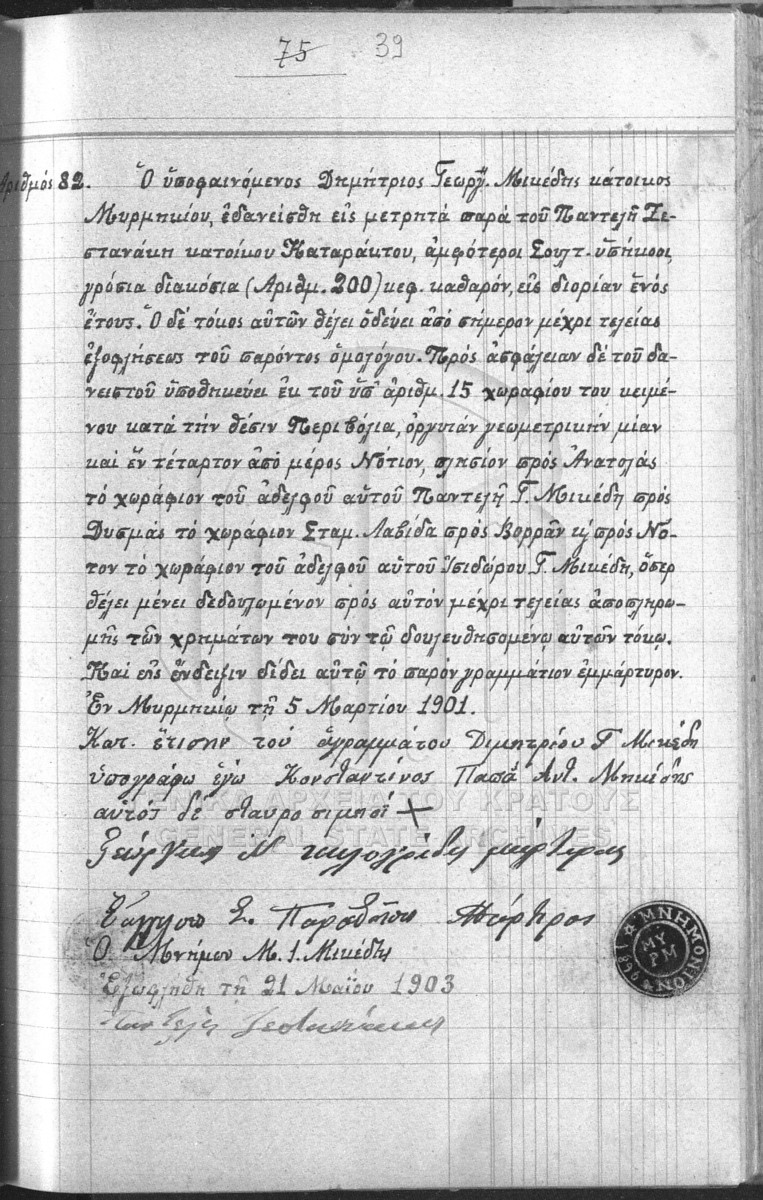 75 39
Ἀριθμός 82. Ὁ ὑποφαινόμενος Δημήτριος Γεωργ. Μικέδης κάτοικος
Μυρμηκίου, ἐδανείσθη εἰς μετρητά παρά τοῦ Παντελῆ Ζε-
στανάκη κατοίκου Καταράκτου, ἀμφότεροι Σουλτ. ὑπήκοοι,
γρόσια διακόσια (Ἀριθμ. 200) κεφ. καθαρόν, εἰς διορίαν ἑνός
ἔτους. Ὁ δέ τόκος αὐτῶν θέλει ὁδεύει ἀπό σήμερον μέχρι τελείας
ἐξοφλήσεως τοῦ παρόντος ὁμολόγου. Πρός ἀσφάλειαν δέ τοῦ δα-
νειστοῦ ὑποθηκεύει ἐκ τοῦ ὑπ' ἀριθμ. 15 χωραφίου του κειμέ-
νου κατά τήν θέσιν Περιβόλια, ὀργυιάν γεωμετρικήν μίαν
καί ἕν τέταρτον ἀπό μέρος Νότιον, πλησίον πρός Ἀνατολάς
τό χωράφιον τοῦ ἀδελφοῦ αὐτοῦ Παντελῆ Γ. Μικέδη πρός
Δυσμάς τό χωράφιον Σταμ. Λαβίδα πρός Βορρᾶν κ̓ πρός Νό-
τον τό χωράφιον τοῦ ἀδελφοῦ αὐτοῦ Ἰσιδώρου Γ. Μικέδη, ὅπερ
θέλει μένει δεδουλωμένον πρός αὐτόν μέχρι τελείας ἀποπληρω-
μῆς τῶν χρημάτων του σύν τῷ δουλευθησομένῳ αὐτῶν τόκῳ.
Καί εἰς ἔνδειξιν δίδει αὐτῷ τό παρόν γραμμάτιον ἐμμάρτυρον.
Ἐν Μυρμηκίῳ τῇ 5 Μαρτίου 1901.
Κατ. ἔτισην τοῦ ἀγραμμάτου Διμητρίου Γ Μικέδη
ὑπογράφω ἐγώ Κονσταντίνος Παπᾶ Ἀντ. Μηκέδης
αὐτός δέ σταυροσιμηοῖ +
ΓΕΝΙΚΑ ΑΡΧΕΙΑ ΤΟΥ ΚΡΑΤΟΥΣ
GENERAL STATE ARCHIVES
Γεώργιος Ν Καλογρίδης μάρτυρας
Σ. Μάρτηρος
Ὁ Μνήμων Μ. Ι. Μικέδης
ΜΝΗΜΟΝΙΟΝ
ΜΥΡΜ
1866
Ἐξωφλήθη τῇ 21 Μαΐου 1903
Παντελῆ Ζεστανάκης